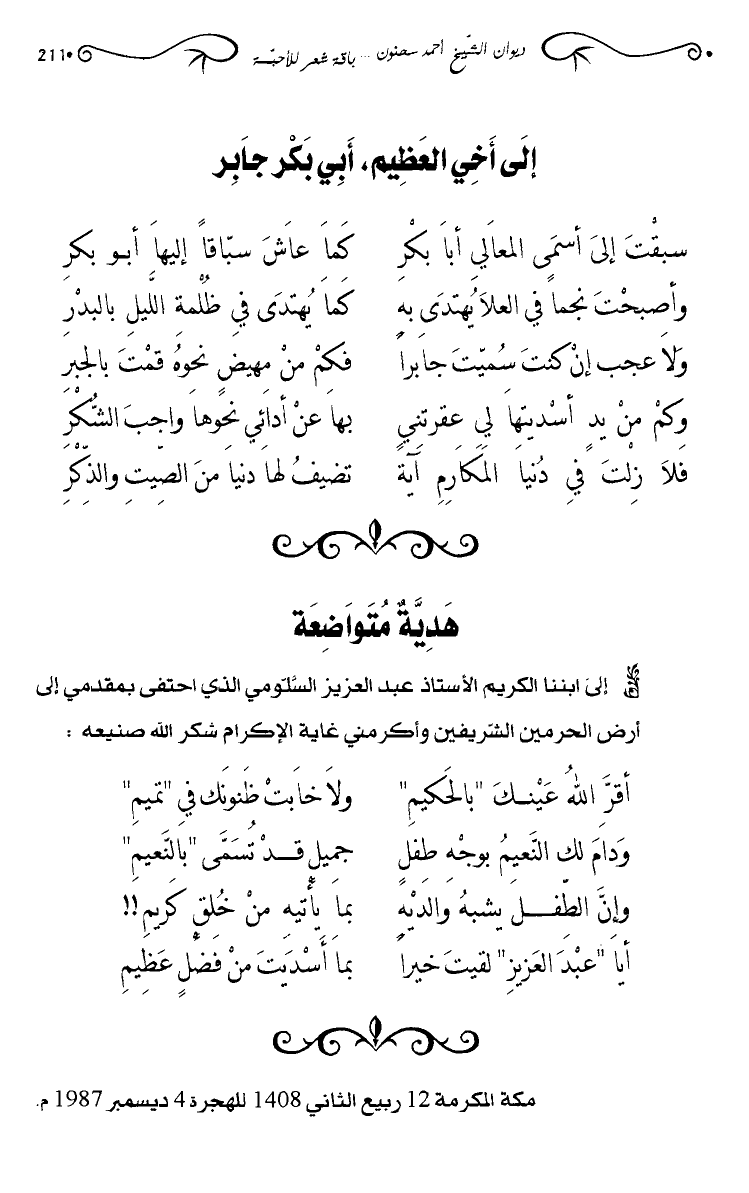 ديوان الشّيخ أحمد سحنون ... باقة شعر للأحبّة 211
إلَى أَخِي العَظِيم، أَبِي بَكْر جابِر
سبقْتَ إلىَ أسمَى المعاَلي أباَ بكْرِ كَماَ عاَشَ سبّاقاً إليهاَ أبـو بكرِ
وأصبحْتَ نجماً في العلاَ يُهتدَى بهِ كماَ يُهتدَى فِي ظُلْمةِ اللَّيلِ بالبدْرِ
ولاَ عجب إنْ كنتَ سُميّتَ جاَبراً فكمْ منْ مهيضٍ نحوهُ قمْتَ بالجبرِ
وكمْ منْ يدٍ أسْديتهاَ لي عقرتنِي بهاَ عنْ أدائِي نحْوهاَ واجبَ الشُّكْرِ
فلاَ زلْتَ فِي دُنياَ المكاَرِمِ آيَةً تضيفُ لهاَ دنياَ منَ الصِّيتِ والذِّكْرِ
هَدِيَّةٌ مُتَواَضِعَة
إلىَ ابننا الكريم الأستاذ عبد العزيز السّلّومي الذي احتفى بمقدمي إلى
أرض الحرمين الشّريفين وأكرمني غاية الإكرام شكر الله صنيعه :
أقرَّ اللهُ عَيْنـكَ "بالحَكيمِ" ولاَ خاَبتْ ظَنونَك فِي "تميمِ"
وَدامَ لك النَّعيمُ بوجْهِ طِفلٍ جميلٍ قـدْ تُسَمَّى "بالنَّعيمِ"
وإنَّ الطّفـلَ يشبهُ والديْهِ بماَ يأْتيهِ منْ خُلقٍ كَريمِ!!
أياَ "عبْدَ العَزيزِ" لقيتَ خيراً بماَ أَسْدَيتَ منْ فضْلٍ عَظِيمِ
مكة المكرمة 12 ربيع الثاني 1408 للهجرة 4 ديسمبر 1987 م.